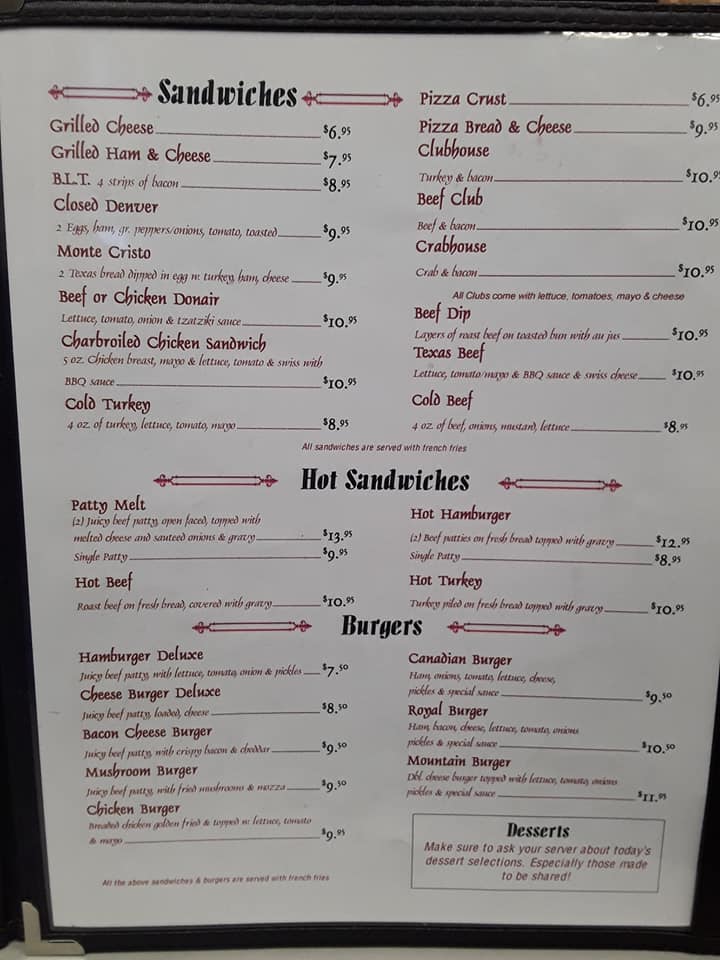 Sandwiches
Grilled Cheese $6.95
Grilled Ham & Cheese $7.95
B.L.T. 4 strips of bacon $8.95
Closed Denver
2 Eggs, ham, gr. peppers/onions, tomato, toasted $9.95
Monte Cristo
2 Texas bread dipped in egg w: turkey, ham, cheese $9.95
Beef or Chicken Donair
Lettuce, tomato, onion & tzatziki sauce $10.95
Charbroiled Chicken Sandwich
5 oz. Chicken breast, mayo & lettuce, tomato & swiss with
BBQ sauce $10.95
Cold Turkey
4 oz. of turkey, lettuce, tomato, mayo $8.95
Pizza Crust $6.95
Pizza Bread & Cheese $9.95
Clubhouse
Turkey & bacon $10.9
Beef Club
Beef & bacon $10.95
Crabhouse
Crab & bacon $10.95
All Clubs come with lettuce, tomatoes, mayo & cheese
Beef Dip
Layers of roast beef on toasted bun with au jus $10.95
Texas Beef
Lettuce, tomato/mayo & BBQ sauce & swiss cheese $10.95
Cold Beef
4 oz. of beef, onions, mustard, lettuce $8.95
All sandwiches are served with french fries
Hot Sandwiches
Patty Melt
(2) Juicy beef patty, open faced, topped with
melted cheese and sauteed onions & gravy $13.95
Single Patty $9.95
Hot Beef
Roast beef on fresh bread, covered with gravy $10.95
Hot Hamburger
(2) Beef patties on fresh bread topped with gravy $12.95
Single Patty $8.95
Hot Turkey
Turkey piled on fresh bread topped with gravy $10.95
Burgers
Hamburger Deluxe
Juicy beef patty, with lettuce, tomato, onion & pickles $7.50
Cheese Burger Deluxe
Juicy beef patty, loaded, cheese $8.50
Bacon Cheese Burger
Juicy beef patty, with crispy bacon & cheddar $9.50
Mushroom Burger
Juicy beef patty, with fried mushrooms & mozza $9.50
Chicken Burger
Breaded chicken golden fried & topped w: lettuce, tomato
& mayo $9.95
Canadian Burger
Ham, onions, tomato, lettuce, cheese,
pickles & special sauce $9.50
Royal Burger
Ham, bacon, cheese, lettuce, tomato, onions
pickles & special sauce $10.50
Mountain Burger
Dbl. cheese burger topped with lettuce, tomato, onions
pickles & special sauce $11.95
All the above sandwiches & burgers are served with french fries
Desserts
Make sure to ask your server about today's
dessert selections. Especially those made
to be shared!